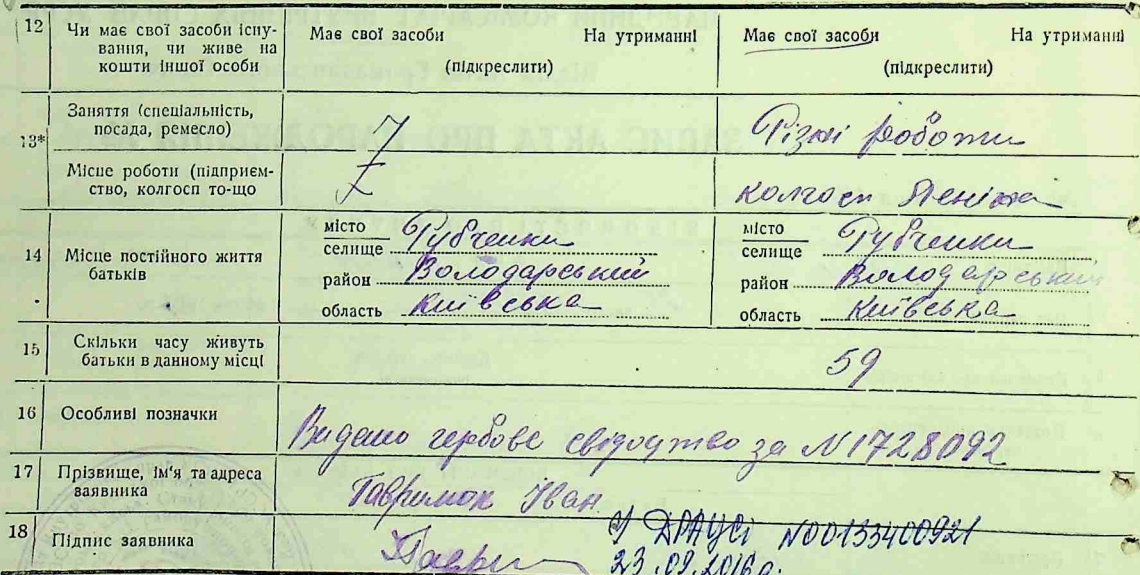 12 Чи має свої засоби існу-
вання, чи живе на
кошти іншої особи
Має свої засоби На утриманні
(підкреслити)
Має свої засоби На утриманні
(підкреслити)
13* Заняття (спеціальність,
посада, ремесло)
Різні роботи
Місце роботи (підприєм-
ство, колгосп то-що
колгосп Леніна
14 Місце постійного життя
батьків
місто
селище Рубченки
район Володарський
область Київська
місто
селище Рубченки
район Володарський
область Київська
15 Скільки часу живуть
батьки в данному місці
59
16 Особливі позначки
Видано гербове свідоцтво за N1728092
17 Прізвище, ім'я та адреса
заявника
Іван
18 Підпис заявника
У ДРАЦСі N00133400921
23.09.2016р.